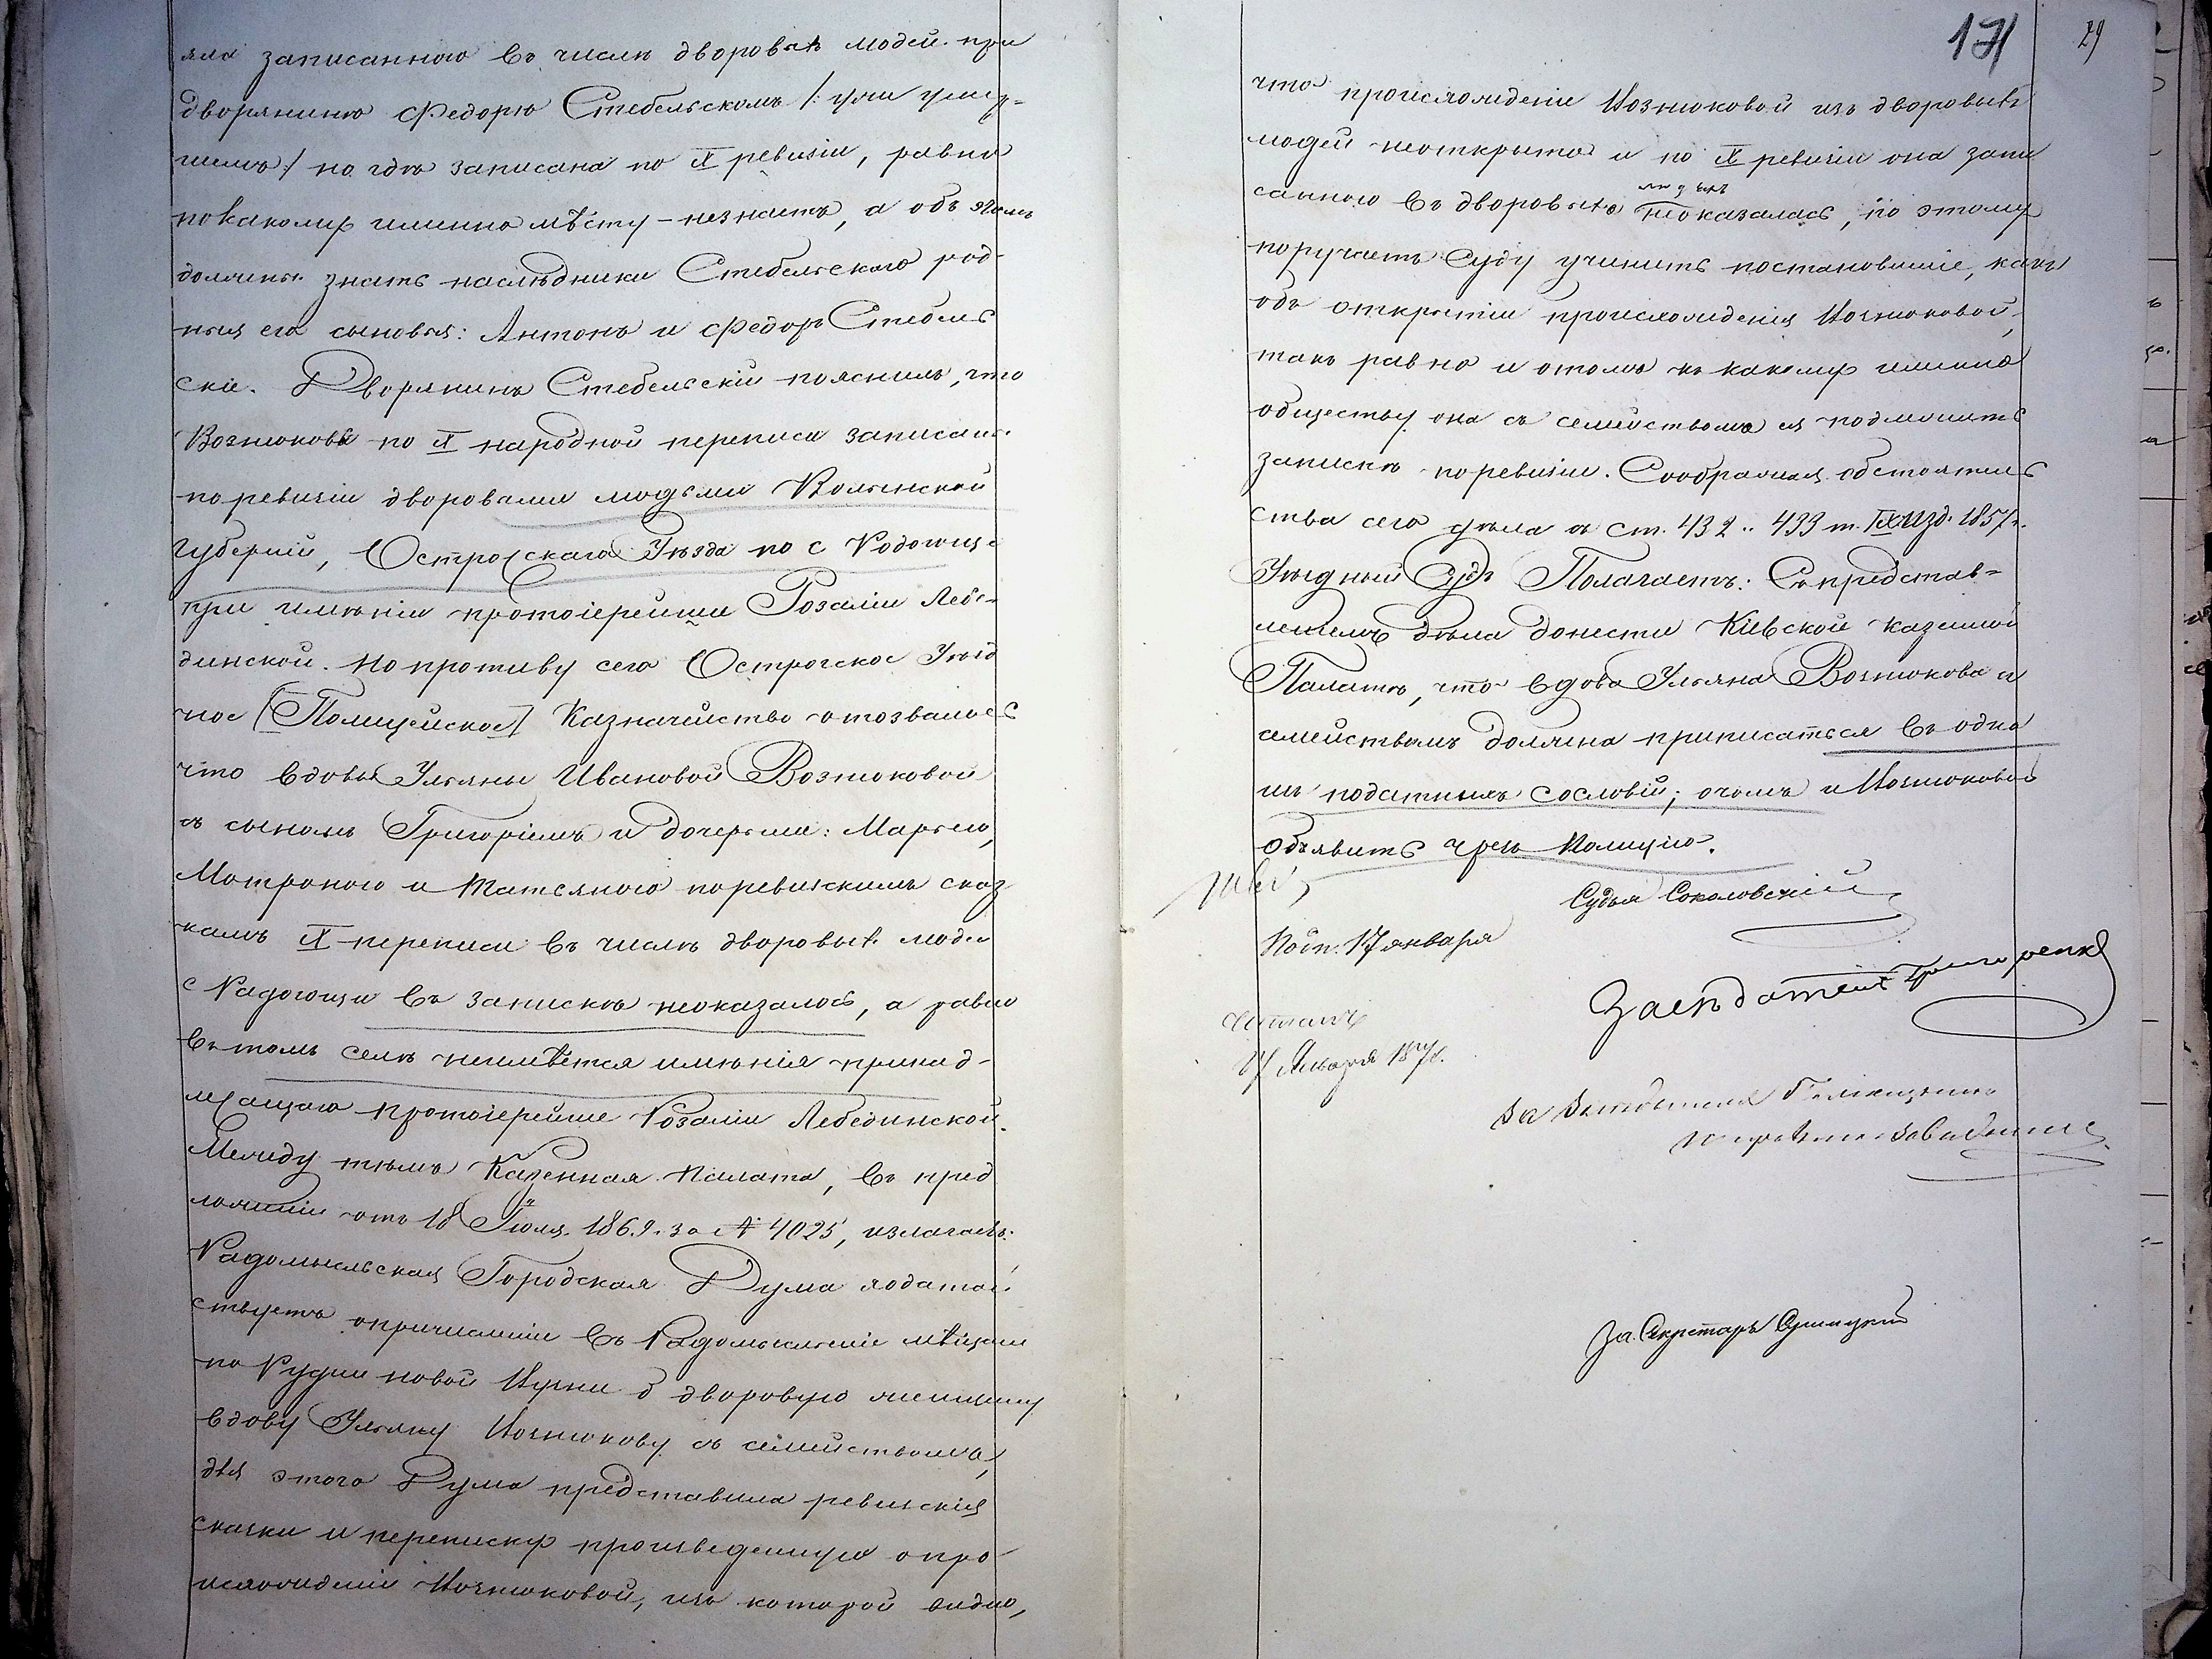 яла записанною въ числѣ дворовыхъ людей при
дворянинѣ Федорѣ Стебельскомъ /: уже умер-
шемъ :/ но гдѣ записана по X ревизіи, равно
по какому именно мѣсту – незнаетъ, а объ этомъ
должны знать наслѣдники Стебельскаго род-
ныя его сыновья: Антонъ и Федоръ Стебель
скіе. Дворянинъ Стебельскій пояснилъ, что
Вознюкова по X народной переписи записаны
по ревизіи дворовыми людьми Волынской
Губерніи, Острогскаго Уѣзда по с Радогоще
при имѣніи протоіерейши Розаліи Лебе-
динской. Но противу сего Острогское Уѣзд
ное [Полицейское] Казначейство отозвалось
что вдовы Ульяны Ивановой Вознюковой
съ сыномъ Григоріемъ и дочерьми: Марьею,
Мотроною и Татьяною по ревизскимъ сказ
камъ X переписи въ числѣ дворовыхъ людей
с Радогощи въ запискѣ неоказалось, а равно
въ томъ селѣ неимѣется имѣнія принад-
лежащаго протоіерейше Розаліи Лебединской.
Между тѣмъ Казенная Палата, въ пред
ложеніи отъ 18 Іюля 1869 г. за № 4025, излагаетъ:
Радомысльская Городская Дума ходатай
ствуетъ опричисленіи въ Радомысльскіе мѣщане
по Рудни новой Ирши б дворовую женщину
вдову Ульяну Вознюкову съ семействомъ,
для этого Дума представила ревизскія
сказки и переписку произведенную о про
исхожденіи Вознюковой, изъ которой видно,
171 29
что происхожденіе Вознюковой изъ дворовыхъ
людей неоткрыто и по X ревизіи она запи
санною въ дворовыхъ людяхъ неоказалась, по этому
поручаетъ Суду учинить постановленіе, какъ
объ открытіи происхожденія Вознюковой,
такъ равно и отомъ къ какому именно
обществу она съ семействомъ ея подлежитъ
запискѣ по ревизіи. Соображая обстоятель
ства сего дѣла съ ст. 432 .. 433 т. IX изд. 1857 г.
Уѣздный Судъ Полагаетъ: Съ представ-
леніемъ дѣла донести Кіевской казенной
Палатѣ, что вдова Ульяна Вознюкова съ
семействомъ должна приписаться въ одно
изъ податныхъ сословій; очемъ и Вознюковой
Объявить чрезъ Полицію.
Судья Соколовскій
Подп. 17 января
Засѣдатель Григоренко
Читалъ
17 Января 1870 г.
За Засѣдателя
За. Секретаря